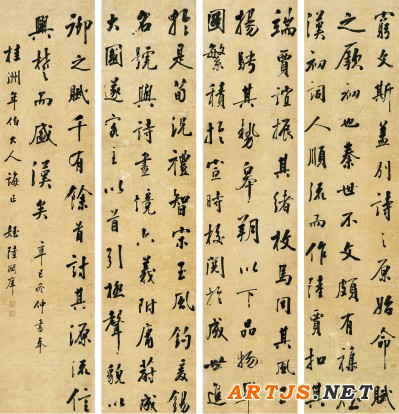 窮文斯蓋別詩之原始命賦
之厥初也秦世不文頗有雜賦
漢初詞人順流而作陸賈扣其
端賈誼振其緒枚馬同其風王
揚騁其勢皋朔以下品物畢
圖繁積於宣時校閱於成世進
於是荀況禮智宋玉風釣爰錫
名號與詩畫境六義附庸蔚成
大國遂客主以首引極聲貌以
御之賦千有餘首討其源流信
興楚而盛漢矣 辛巳冬仲書奉
桂洲年伯大人誨正 姪陸潤庠
ARTJS.NET